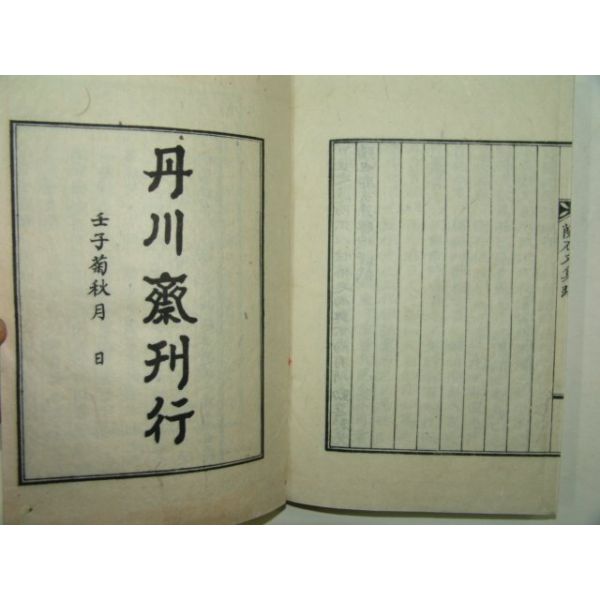 丹川齋刊行
壬子菊秋月 日
文集